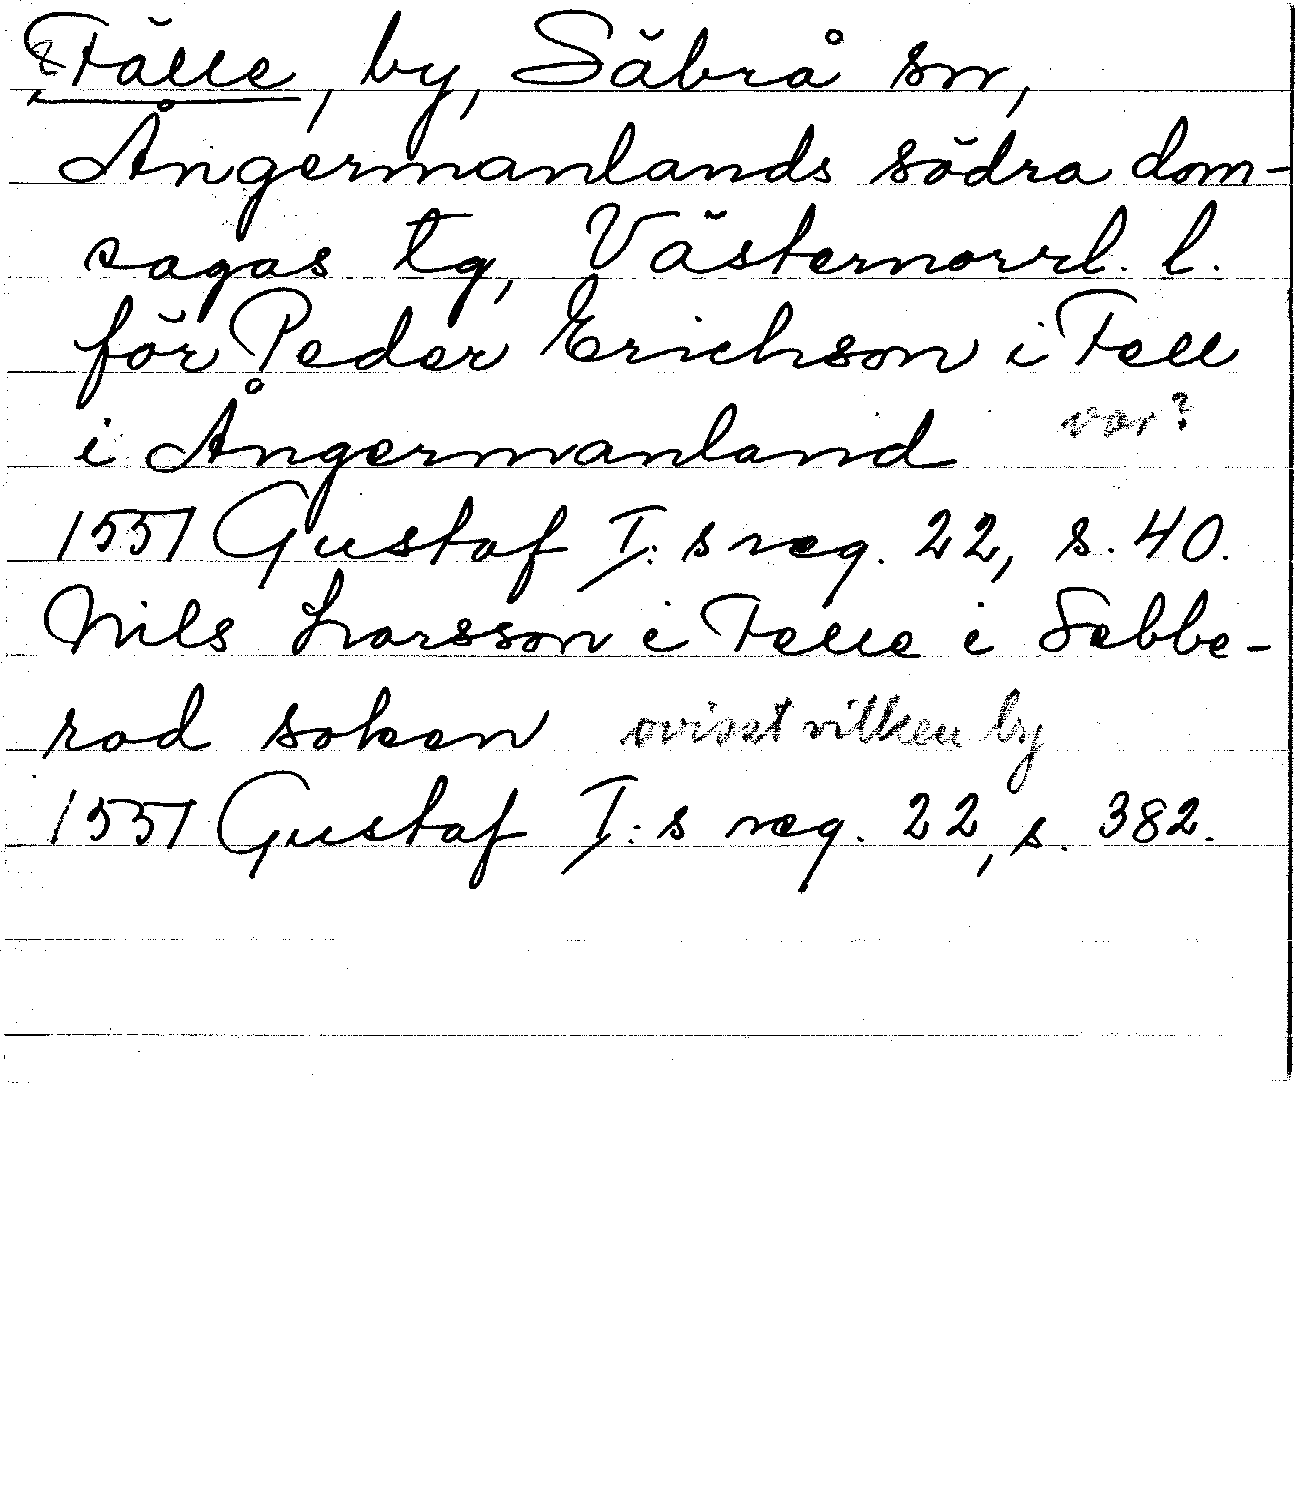 Fälle, by, Säbrå sn,
Ångermanlands södra dom-
sagas tg, Västernorrl. l.
för Peder Erichson i Fell
i Ångermanland var?
1551 Gustaf I: s reg. 22, s. 40.
Nils Larsson i Felle i Sebbe-
rad soken ovisst vilken by
1551 Gustaf I: s reg. 22, s. 382.